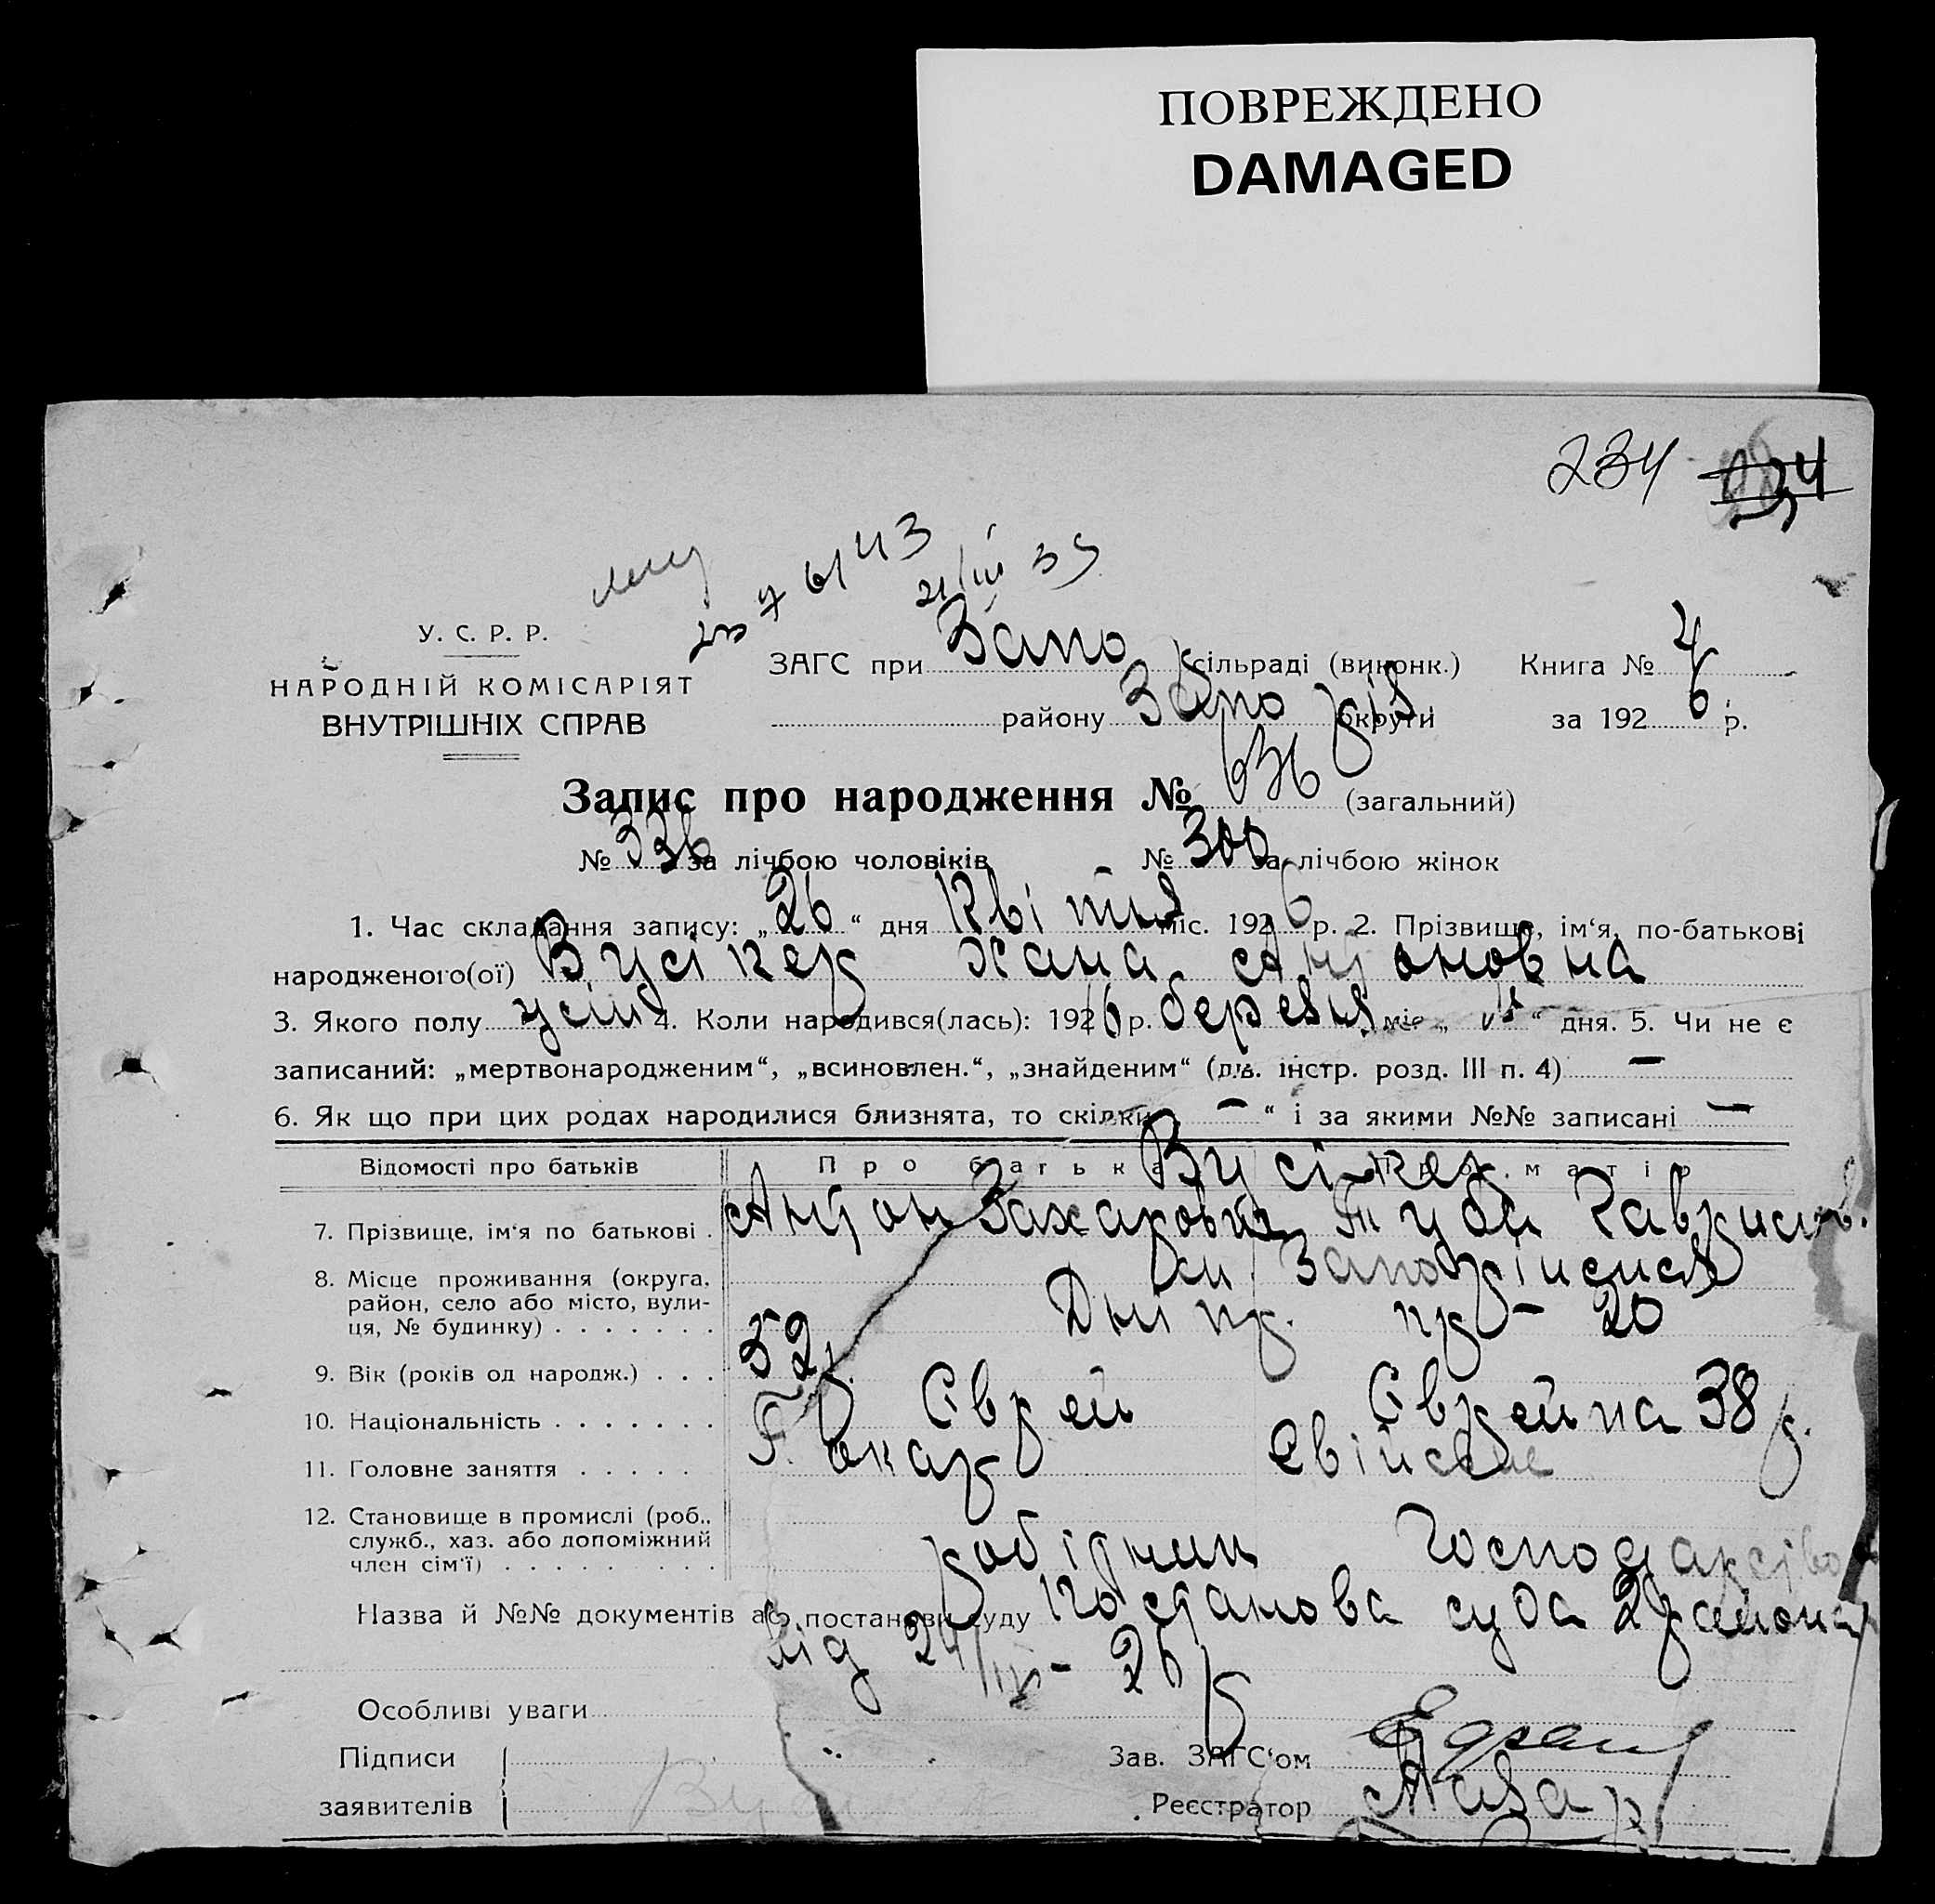 ПОВРЕЖДЕНО
DAMAGED
234 234
6143
21/III 39
У. С. Р. Р.
НАРОДНІЙ КОМІСАРІЯТ
ВНУТРІШНІХ СПРАВ
ЗАГС при Запо сільраді (виконк.) Книга № 4
району Запоріз. округи за 1926 р.
Запис про народження № 636 (загальний)
№ 336 за лічбою чоловіків № 300 за лічбою жінок
1. Час складання запису: „26“ дня Квітня міс. 1926 р. 2. Прізвище, ім‘я, по-батькові
народженого(ої) Вусікер Хана Антоновна
3. Якого полу 4. Коли народився(лась): 1926 р. березня міс. „ “ дня. 5. Чи не є
записаний: „мертвонародженим“, „всиновлен.“, „знайденим“ (див. інстр. розд. III п. 4) —
6. Як що при цих родах народилися близнята, то скільки — “ і за якими №№ записані —
Відомості про батьків Про батька Про матір
Вусікер
7. Прізвище, ім‘я по батькові . Антон Захарович Туба Гаврилов.
8. Місце проживання (округа, район, село або місто, вулиця, № будинку) . . . . . . . м. Запоріжжя
Дніпр. пр – 20
9. Вік (років од народж.) . . . 52 р. 38 р.
10. Національність . . . . . . . Єврей Єврейка
11. Головне заняття . . . . . Токар Свійське
12. Становище в промислі (роб., служб., хаз. або допоміжний член сім‘ї) . . . . . . . . робітник Господарство
Назва й №№ документів або постанови суду Постанова суда 2 района
від 24/III – 26 р
Особливі уваги
Підписи Зав. ЗАГС‘ом
заявителів Вусікер Реєстратор